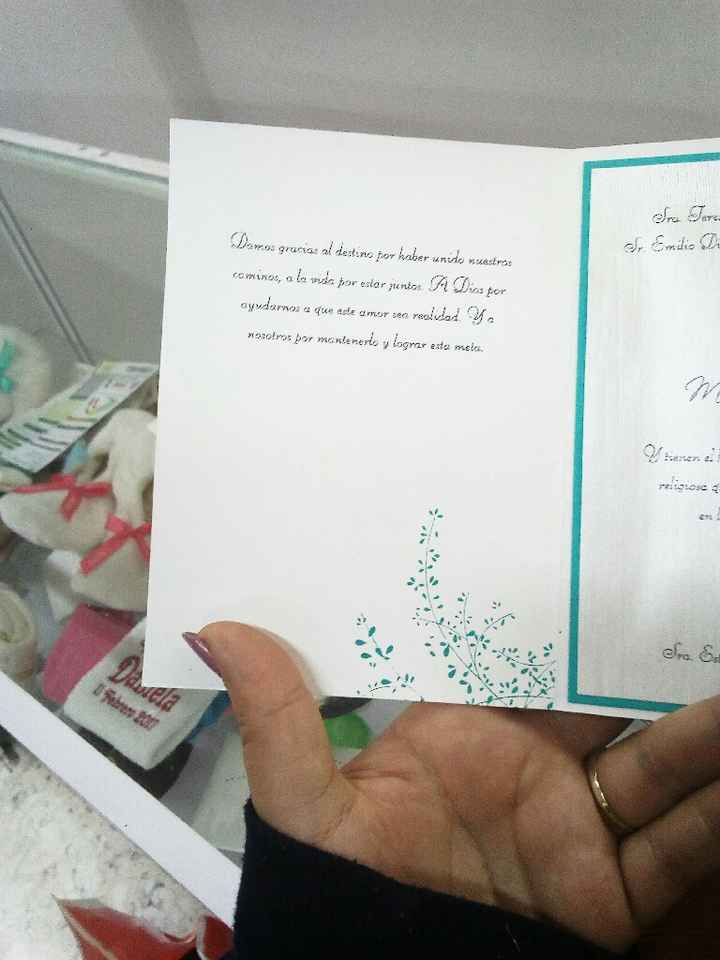 Damos gracias al destino por haber unido nuestros
caminos, a la vida por estar juntos. A Dios por
ayudarnos a que este amor sea realidad. Y a
nosotros por mantenerlo y lograr esta meta.
Sra. Teres
Sr. Emilio Di
M
Y tienen el
religiosa
en l
Sra.
Daniela
11 Febrero 2017